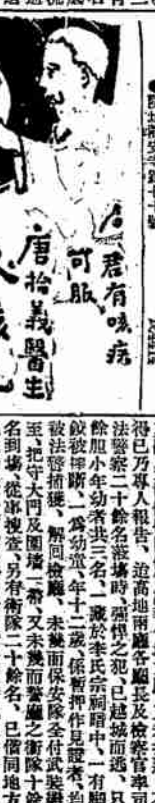 君有咳病
可服
唐拾義醫生
得已乃專人報告、迨高地兩廳各廳長及檢察官率司
法警察二十餘名蒞塲時、强悍之犯、已越城而逃、只
餘胆小年幼者共三名、一藏於李氏宗祠暗中、一有脚
被斷、一爲幼童、年十二歲、係暫押作見證者、均
被法警捕獲、解囘檢廳、未幾而保安隊全付武裝繼
至、把守大門及圍墻一帶、又未幾而警廳之衛隊十餘
名到塲、從事搜查、另有衛隊二十餘名、已偕同地方